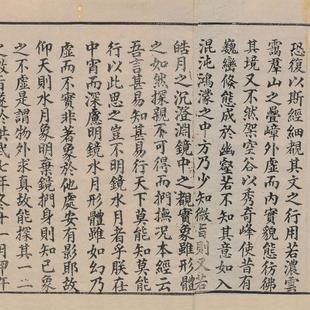 恐復以斯經細觀其文之行用若濃雲
靄羣山之疊嶂外虛而內實貌態彷彿
其境又不然架空谷以秀奇峰使昔有
巍巒倏態成於幽壑若不知其意如入
混沌鴻濛之中方乃少知微旨則又若
皓月之沉澄淵鏡中之觀實象雖形體
之如然探親不可得而捫撫況本經云
吾言甚易知甚易行天下莫能知莫能
行以此思之豈不明鏡水月者乎朕在
中宵而深慮明鏡水月形體雖如幻乃
虛而不實非著象於他處安有影耶故
仰天則水月象明棄鏡捫身則知己象
之不虛是謂物外求真故能探其一二
之旨遂於洪武七年冬十一月甲午